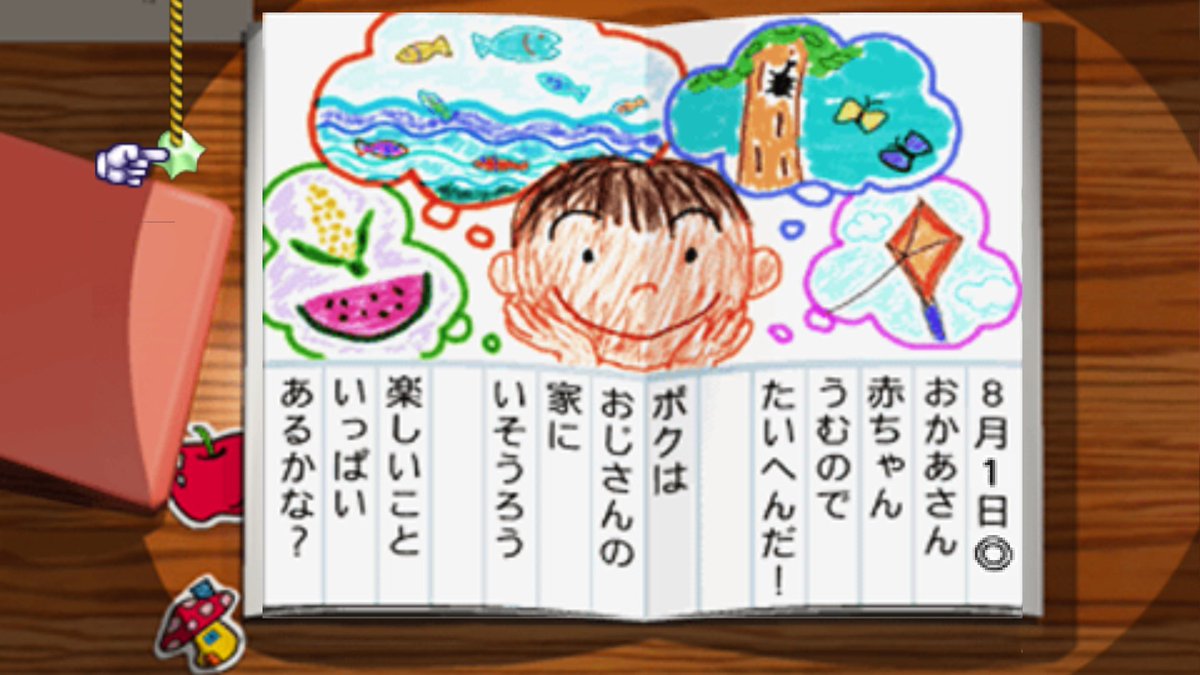 8月1日◎
おかあさん
赤ちゃん
うむので
たいへんだ！
ボクは
おじさんの
家に
いそうろう
楽しいこと
いっぱい
あるかな？